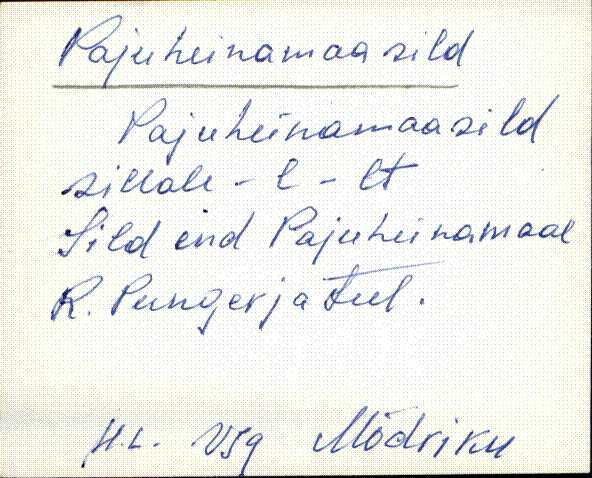 Pajuheinamaasild
Pajuheinamaasild
sillale - l - lt
Sild end Pajuheinamaal
R. Pungerja tul.
H.L. VJg Mõdriku